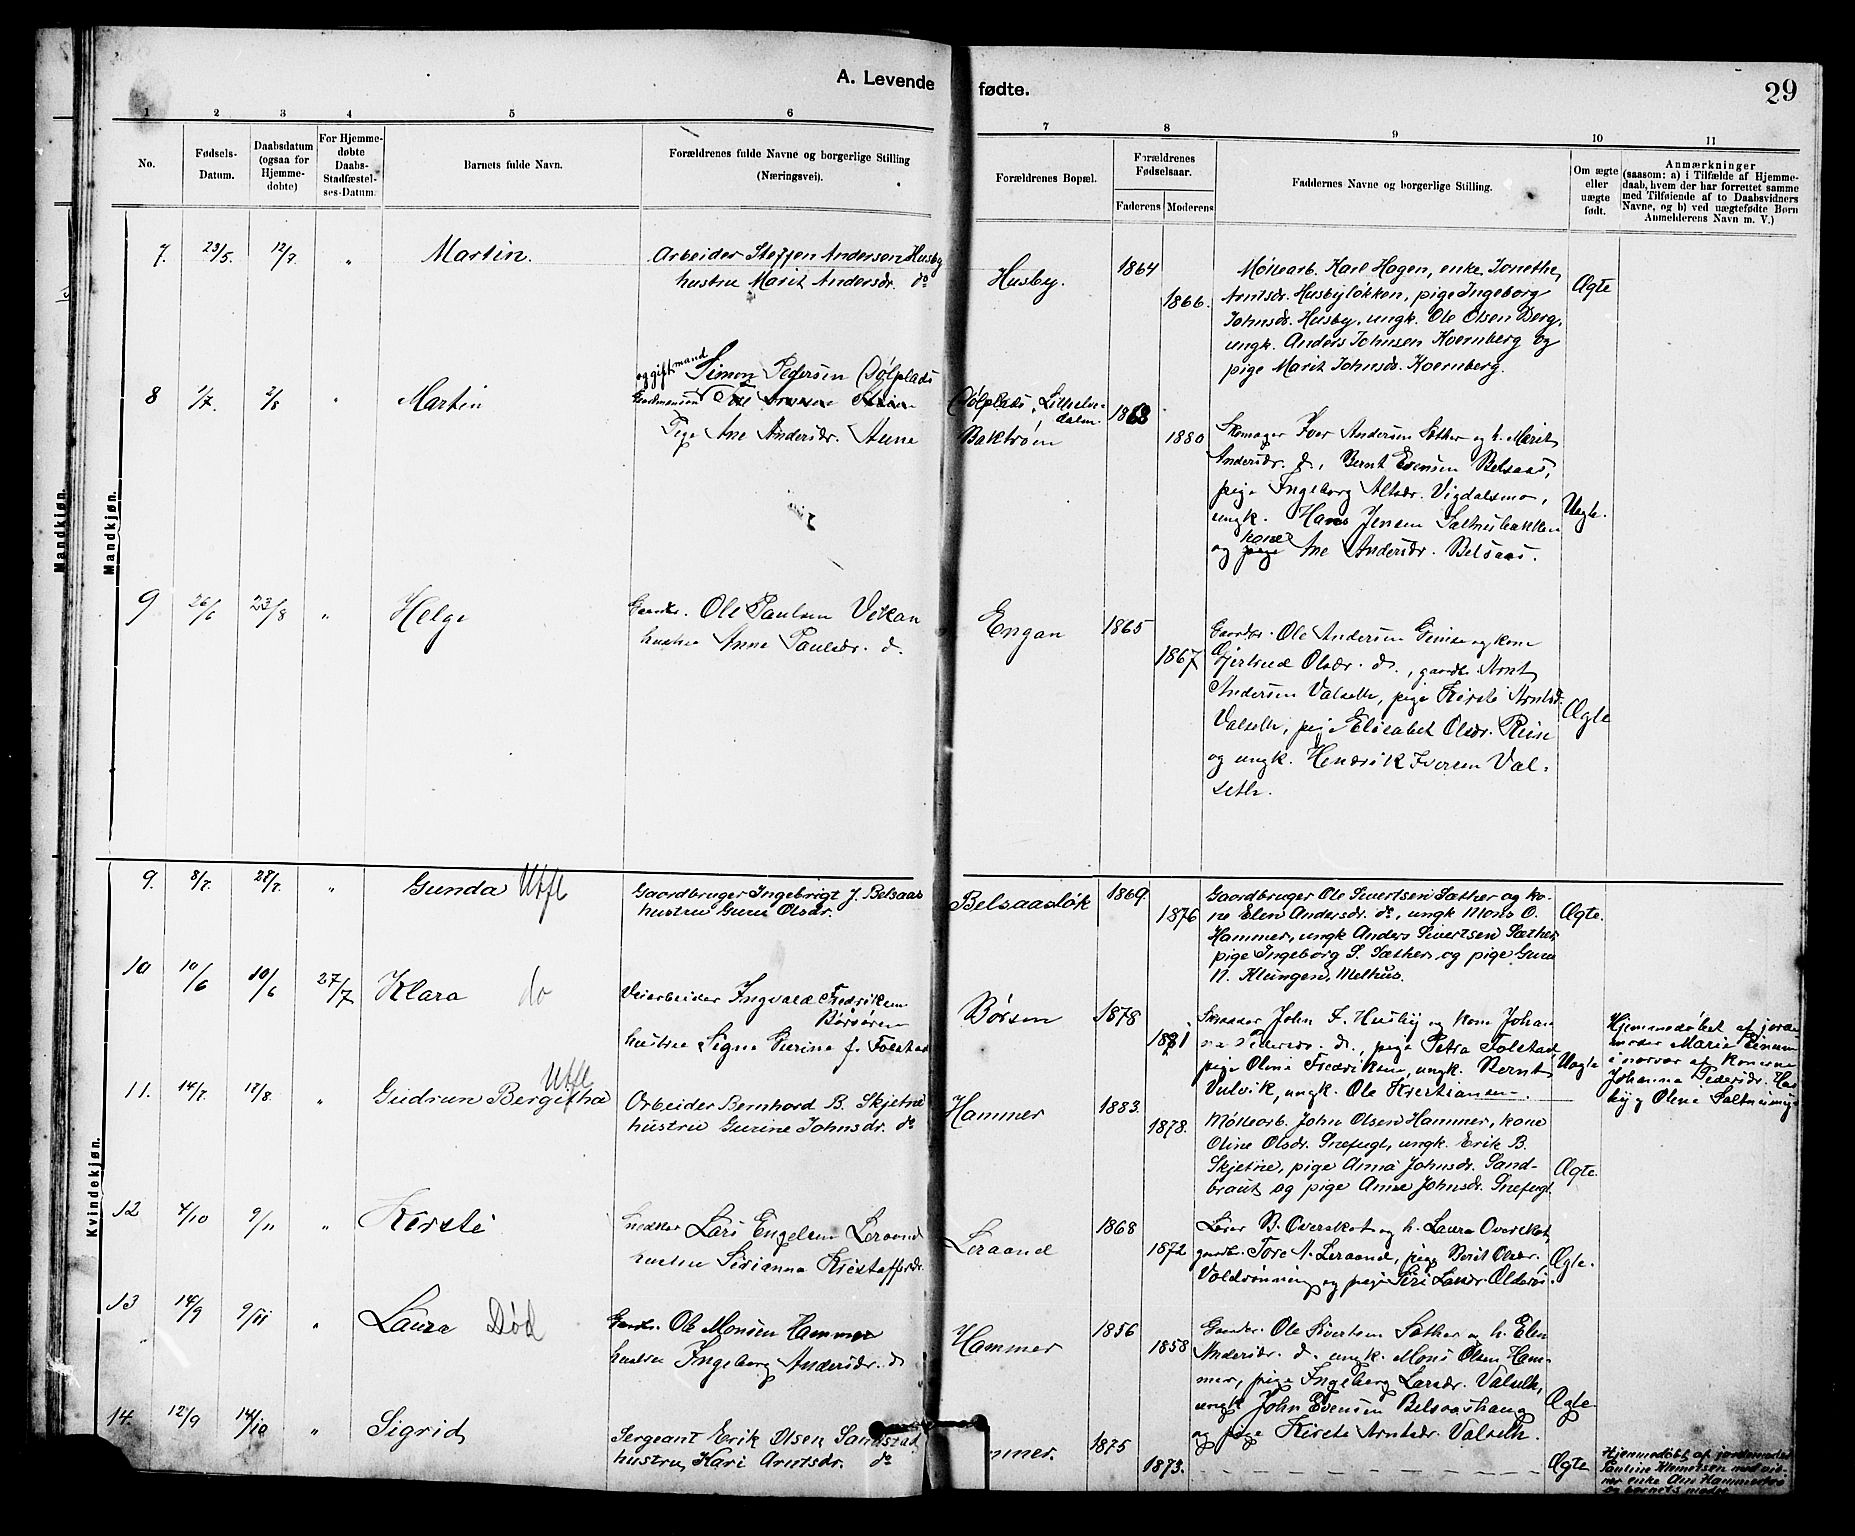 A. Levende fødte.
29
1 2 3 4 5 6 7 8 9 10 11
No.
Fødsels-Datum.
Daabsdatum (ogsaa for Hjemme-døbte)
For Hjemme-døbte Daabs-Stadfæstel-ses-Datum.
Barnets fulde Navn.
Forældrenes fulde Navne og borgerlige Stilling (Næringsvei).
Forældrenes Bopæl.
Forældrenes Fødselsaar.
Faderens Moderens
Faddernes Navne og borgerlige Stilling.
Om ægte eller uægte født.
Anmærkninger
(saasom: a) i Tilfælde af Hjemme-
daab, hvem der har forrettet samme
med Tilføiende af to Daabsvidners
Navne, og b) ved uægtefødte Børn
Anmelderens Navn m. V.)
Mandkjøn.
Mandkjøn.
7. 23/5. 12/7. " Martin. Arbeider Steffen Andersen Husby
hustru Marit Andersdr. do
Husby. 1864 1866.
Møllearb. Karl Hagen, enke Jonethe
Arntsdr. Husbyløkken, pige Ingeborg
Johnsdr. Husby, ungk. Ole Olsen Berg,
ungk. Anders Johnsen Kvernberg og
pige Marit Johnsdr. Kvernberg.
Ægte
8 1/7. 2/8 " Martin
og gift mand Simon Pedersen Dølplads
Pige Ane Andersdr. Aune
Dølplads, Lilleelvedalen.
Baktrøen
1868 1880
Skomager Iver Andersen Sæther og h. Marit
Andersdr. d., Bernt Evensen Belsaas,
pige Ingeborg Altsdr. Vigdalsmo,
ungk. Hans Jensen Sætnesbakken
og kone pige Ane Andersdr. Belsaas.
Uægte.
9 26/6 23/8 " Helge
Gaardbr. Ole Paulsen Vikan
hustru Anne Paulsdr. d.
Engan 1865 1867
Gaardbr. Ole Andersen Gimse og kone
Gjertrud Olsdr. d., gaardbr. Arnt
Andersen Valseth, pige Kirsti Arntsdr.
Valseth, pige Elisabet Olsdr. Rein
og ungk. Henrik Iversen Val-
seth.
Ægte
Kvindekjøn.
9. 8/7. 28/7. " Gunda Utfl
Gaardbruger Ingebrigt J. Belsaas
hustru Guru Olsdr.
Belsaasløk 1869. 1876
Gaardbruger Ole Sivertsen Sæther og ko-
ne Elen Andersdr. do, ungk Mons O.
Hammer, ungk Anders Sivertsen Sæther,
pige Ingeborg S. Sæther, og pige Guru
N. Klungen, Melhus.
Ægte.
10 10/6 10/6 27/7 Klara do
Veiarbeider Ingvald Fredriksen
Børsøren
hustru Signe Purine f. Folstad
Børsen 1878 1881
Skrædder John F. Husby og kone Johan
na Pedersdr. d., pige Petra Folstad,
pige Oline Fredriksen, ungk. Bernt
Vulvik, ungk. Ole Kristiansen.
Uægte
Hjemmedøbt af jorde
moder Marie Einum
i nærvær af konerne
Johanna Pedersdr. Hus
by og Olena Saltnes
11. 14/7. 12/8. " Gudrun Bergitha Utfl
Arbeider Bernhard B. Skjetne
hustru Gurine Johnsdr. do
Hammer 1883. 1878.
Møllearb. John Olsen Hammer, kone
Oline Olsdr. Snefugl, ungk. Erik B.
Skjetne, pige Anna Johnsdr. Sand-
braut og pige Anne Johnsdr. Snefugl.
Ægte.
12 4/10 9/11 " Kirsti
Snedker Lars Engelsen Leraand
hustru Serianna Kristoffersdr.
Leraand 1868 1872.
Lærer B. Overskot og h. Laura Overskot,
gaardbr. Tore N. Leraand, pige Berit Olsdr.
Valdrønning og pige Siri Larsdr. Olderøi.
Ægte.
13 14/9 9/11 " Laura Død
Gaardbr. Ole Monsen Hammer
hustru Ingeborg Andersdr. d
Hammer 1856 1858
Gaardbr. Ole Sivertsen Sæther og h. Elen
Andersdr. d. ungk. Mons Olsen Ham-
mer, pige Ingeborg Larsdr. Valseth,
ungk John Evensen Belsaashaug
og pige Kirsti Arntsdr. Valseth.
Ægte
14. 12/9 14/10 " Sigrid
Sergeant Erik Olsen Sandstad
hustru Kari Arntsdr. do
mmer. 1875 1873.
Ægte
Hjemmedøbt af jordemoder
Pauline Klemetsen med vid-
ner enke Ane Hammermo
og barnets moder